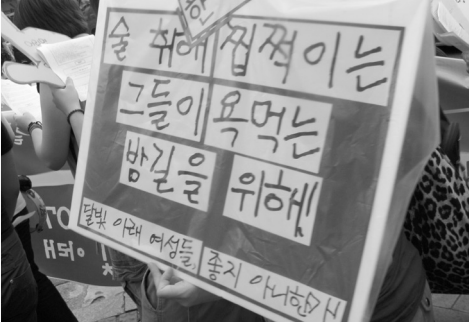 술 취해 찝쩍이는
그들이 욕먹는
밤길을 위해!
달빛 아래 여성들, 좋지 아니한가